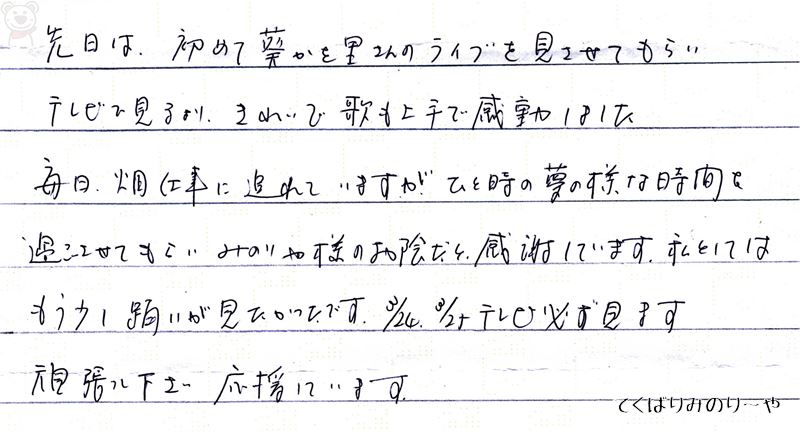 先日は、初めて葵かを里さんのライブを見させてもらい
テレビで見るより、きれいで歌も上手で感動しました
毎日、畑仕事に追れていますが ひと時の夢の様な時間を
過ごさせてもらい みのりや様のお陰だと、感謝しています。私としては
もう少し踊いが見たかったです。3/24、3/25 テレビ必ず見ます
頑張って下さい 応援しています。
てくばりみのりーや